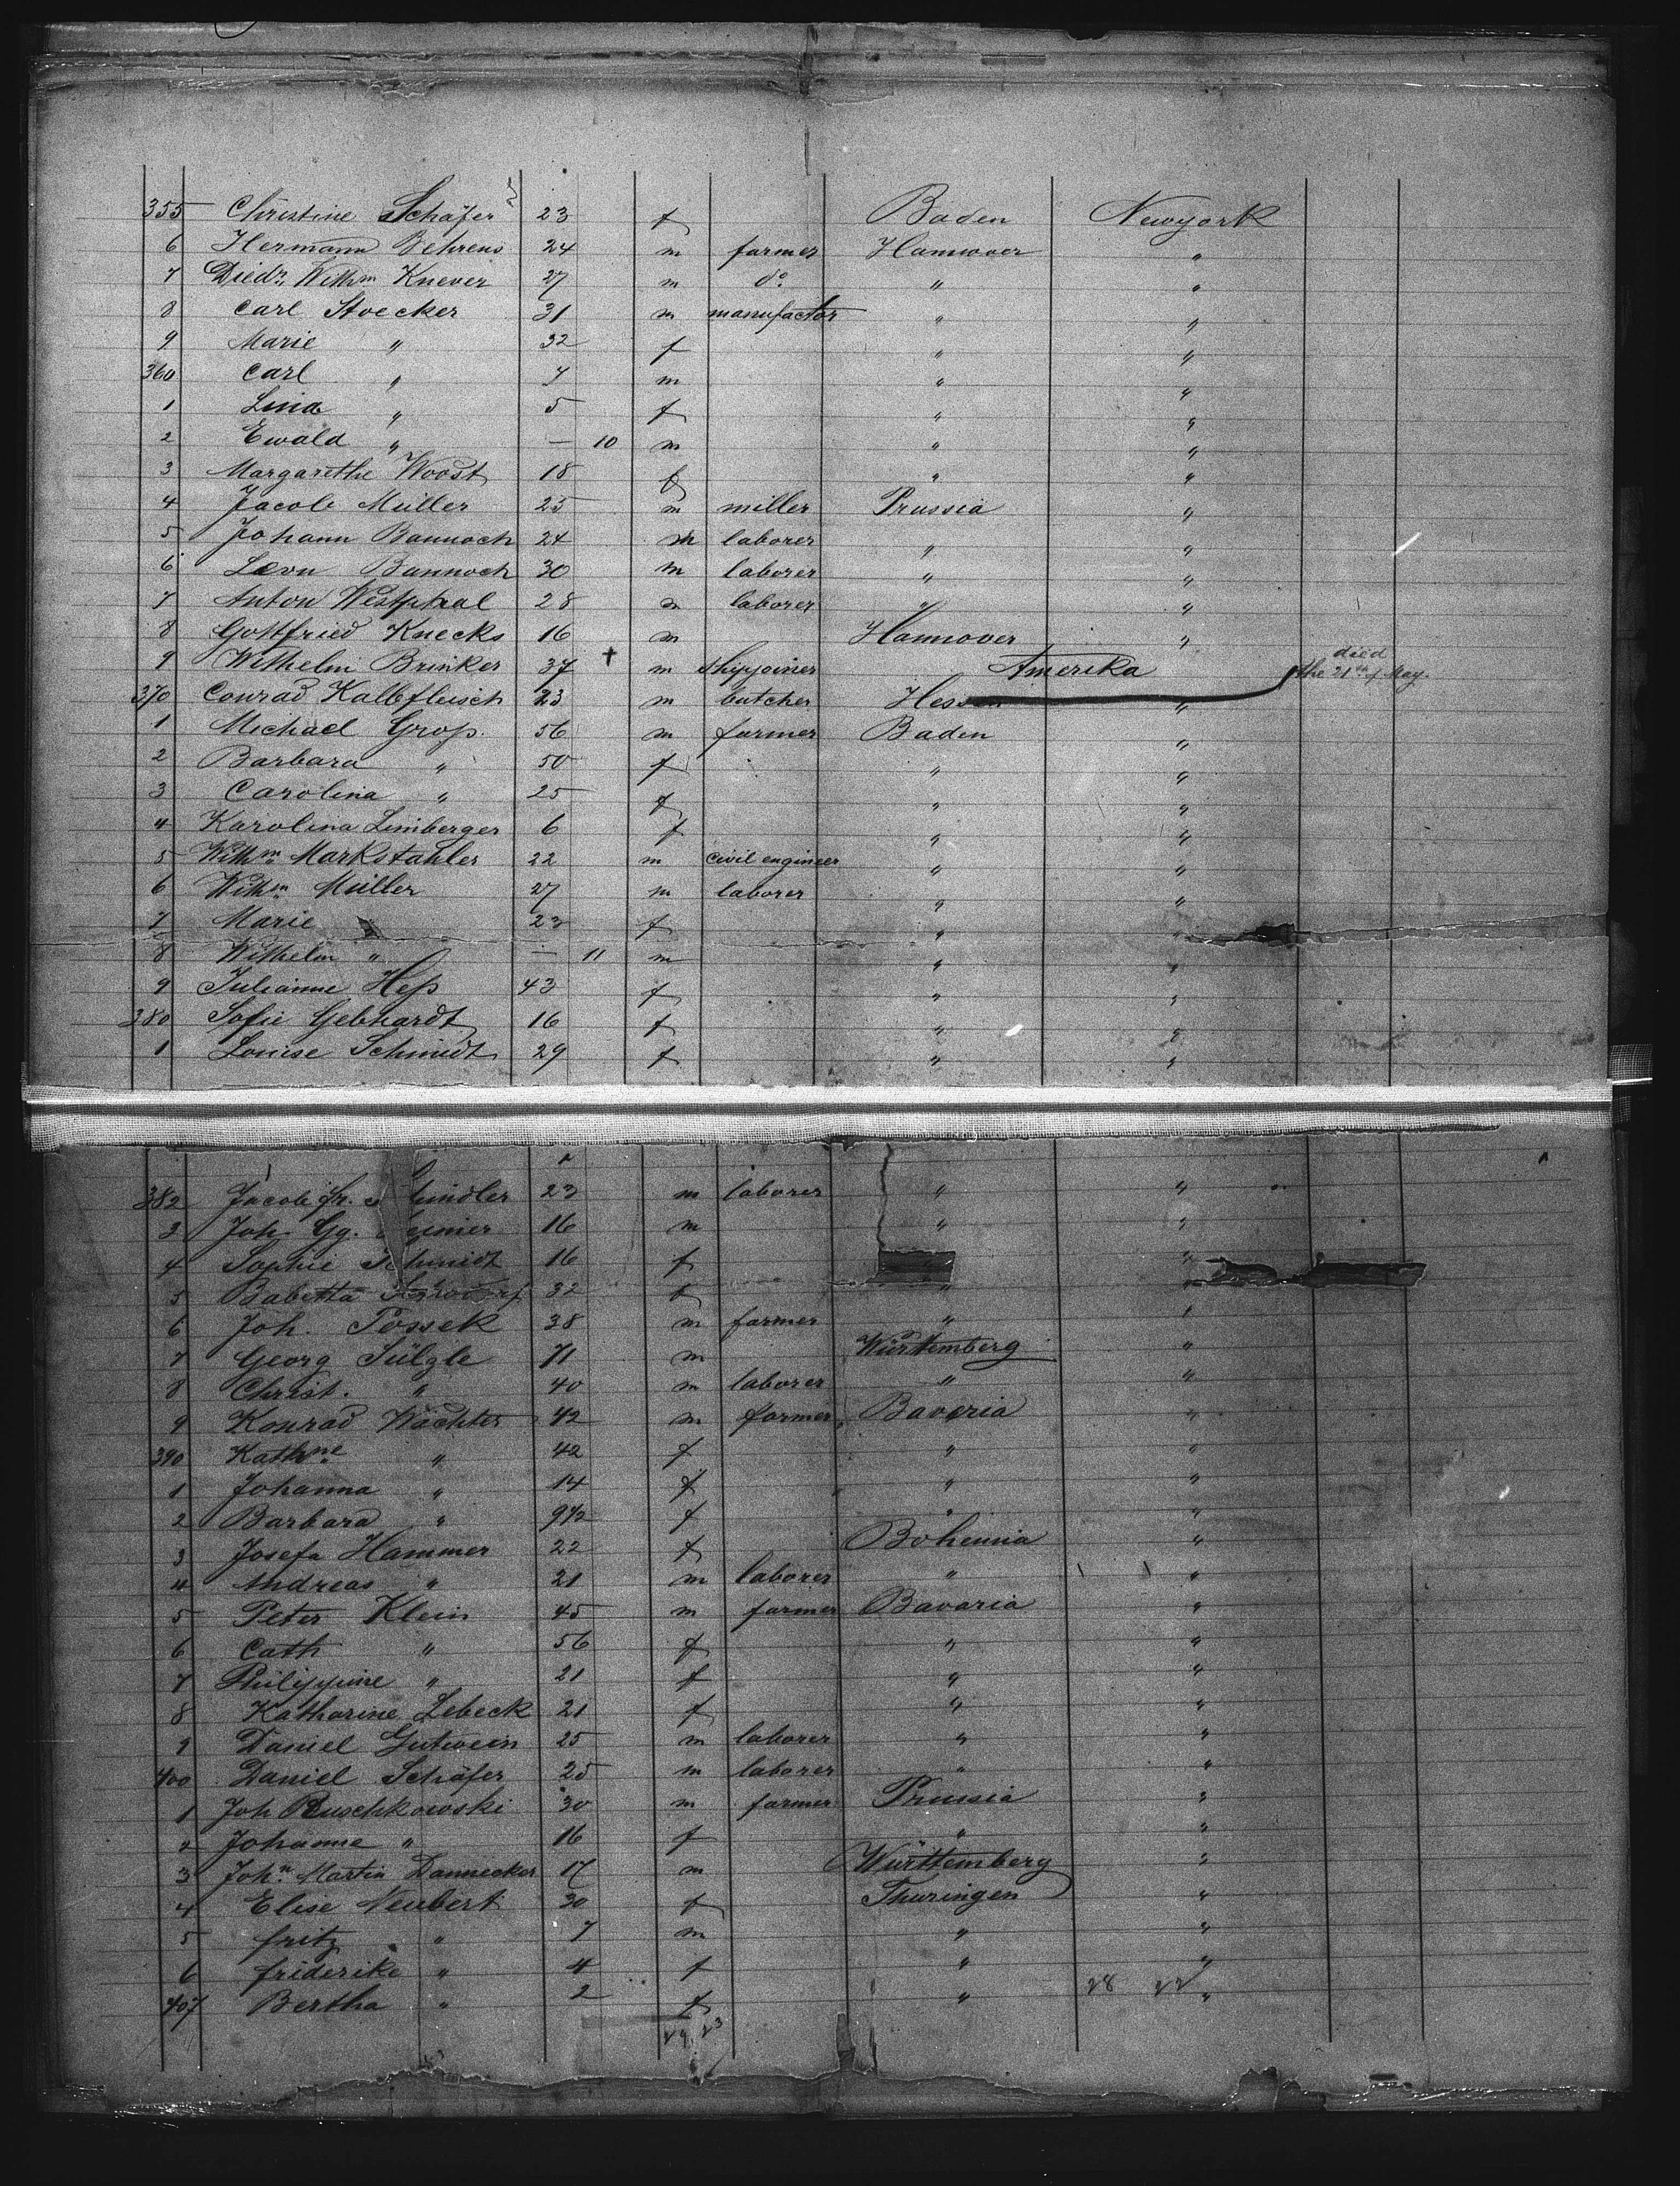 355 Christine Schäfer 23 f Baden Newyork
6 Hermann Behrens 24 m farmer Hannover "
7 Diedr. Wilhm Knever 27 m do " "
8 Carl Stoecker 31 m manufactor " "
9 Marie " 32 f " "
360 Carl " 7 m " "
1 Lina " 5 f " "
2 Ewald " — 10 m " "
3 Margarethe Woost 18 f " "
4 Jacob Müller 25 m miller Prussia "
5 Johann Bannoch 24 m laborer " "
6 Leon Bannoch 30 m laborer " "
7 Anton Westphal 28 m laborer " "
8 Gottfried Knecks 16 m Hannover "
9 Wilhelm Brinker 37 † m shipjoiner Amerika died the 21th of May.
370 Conrad Kalbfleisch 23 m butcher Hessen "
1 Michael Groß 56 m farmer Baden "
2 Barbara " 50 f " "
3 Carolina " 25 f " "
4 Karolina Limberger 6 f " "
5 Wilhm Markstahler 22 m civil engineer " "
6 Wilhm Müller 27 m laborer " "
7 Marie " 23 f " "
8 Wilhelm " — 11 m " "
9 Julianne Heß 43 f " "
380 Sofie Gebhardt 16 f " "
1 Louise Schmidt 29 f " "
382 Jacob Fr. 23 m laborer " "
3 Joh. Gg. 16 m " "
4 Sophie Schmidt 16 f "
5 Babetta 32 f " "
6 Joh. Possek 38 m farmer " "
7 Georg Sülzle 71 m Württemberg "
8 Christ. " 40 m laborer " "
9 Konrad Wächter 42 m farmer Bavaria "
390 Kathne " 42 f " "
1 Johanna " 14 f " "
2 Barbara " 9 1/2 f " "
3 Josefa Hammer 22 f Bohemia "
4 Andreas " 21 m laborer " "
5 Peter Klein 45 m farmer Bavaria "
6 Cath " 56 f " "
7 Philippine " 21 f " "
8 Katharine Lebeck 21 f " "
9 Daniel Gutwein 25 m laborer " "
400 Daniel Schäfer 25 m laborer " "
1 Joh Ruschkowski 30 m farmer Prussia "
2 Johanne " 16 f " "
3 John Martin Dannecker 17 m Württemberg "
4 Elise Neubert 30 f Thuringen "
5 fritz " 7 m " "
6 friderike " 4 f " "
407 Bertha " 2 f " 28 22 "
29. 23